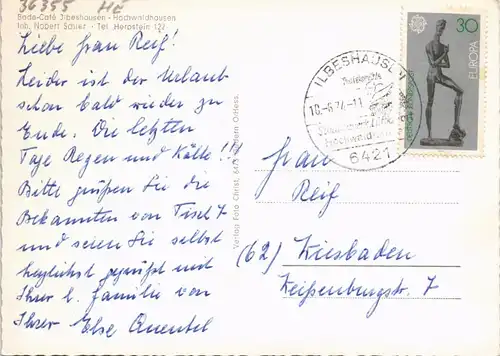 36355 HE
Bade-Café Ilbeshausen - Hochwaldhausen
Inh. Norbert Schiez · Tel. Herbstein 122
Liebe Frau Reif!
Leider ist der Urlaub
schon bald wieder zu
Ende. Die letzten
Tage Regen und Kälte!!
Bitte grüßen Sie die
Bekannten von Tisch 7
und seien Sie selbst
herzlichst gegrüßt mit
Ihrer l. Familie von
Ihrer Else Quentel
Verlag Foto Christ,
ILBESHAUSEN
18.-6.74-11
Hochwaldhausen
6421
30
EUROPA
Frau
Reif
(62) Wiesbaden
Weißenburgstr. 7